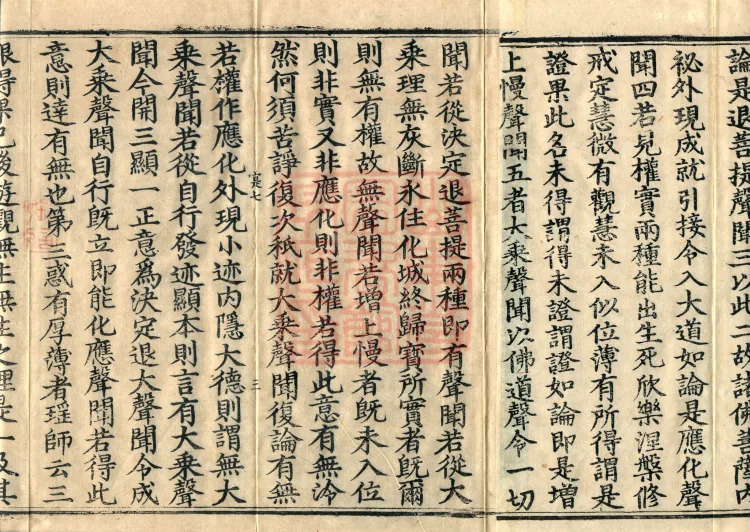 論是退菩提聲聞三以此二故諸佛菩薩内
祕外現成就引接令入大道如論是應化聲
聞四若見權實兩種能出生死欣樂涅槃修
戒定慧微有觀慧未入似位薄有所得謂是
證果此名未得謂得未證謂證如論即是增
上慢聲聞五者大乘聲聞以佛道聲令一切
聞若從決定退菩提兩種即有聲聞若從大
乘理無灰斷永住化城終歸寶所實者既爾
則無有權故無聲聞若增上慢者既未入位
則非實又非應化則非權若得此意有無泠
然何須苦諍復次秖就大乘聲聞復論有無
寔七
三
若權作應化外現小迹内隱大德則謂無大
乘聲聞若從自行發迹顯本則言有大乘聲
聞今開三顯一正意為決定退大聲聞令成
大乘聲聞自行既立即能化應聲聞若得此
意則達有無也第三惑有厚薄者瑶師云三
根得果已後遊觀無生無生之理是一及其